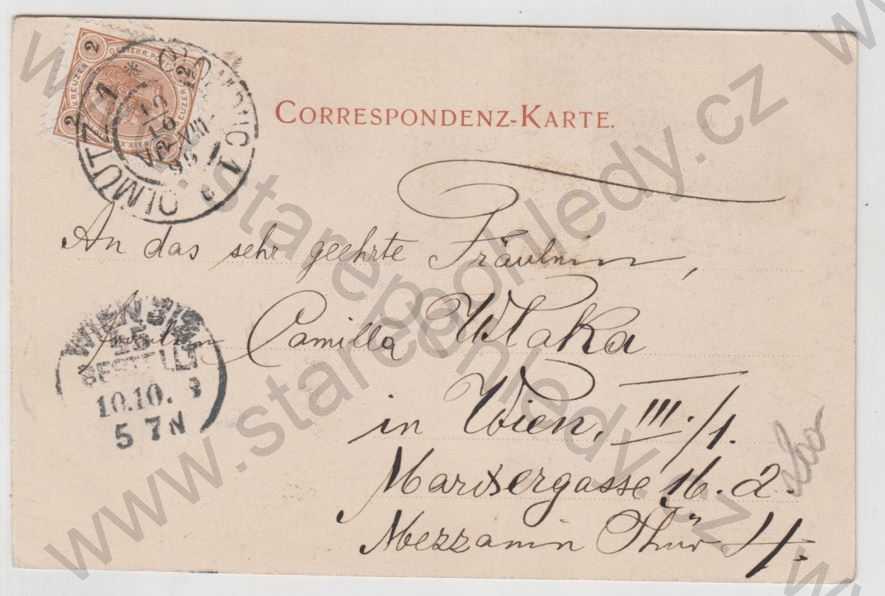 2 KREUZER 2
CORRESPONDENZ-KARTE.
OLMÜTZ 1 * OLOMOUC 1
An das sehr geehrte Fräulein,
Camilla Wlaka
in Wien, III./1.
Marxergasse 16. 2.
Mezzanin Thür 4.
WIEN 3/
BESTELLT
10.10.
5 7 N
200
www.starepohledy.cz